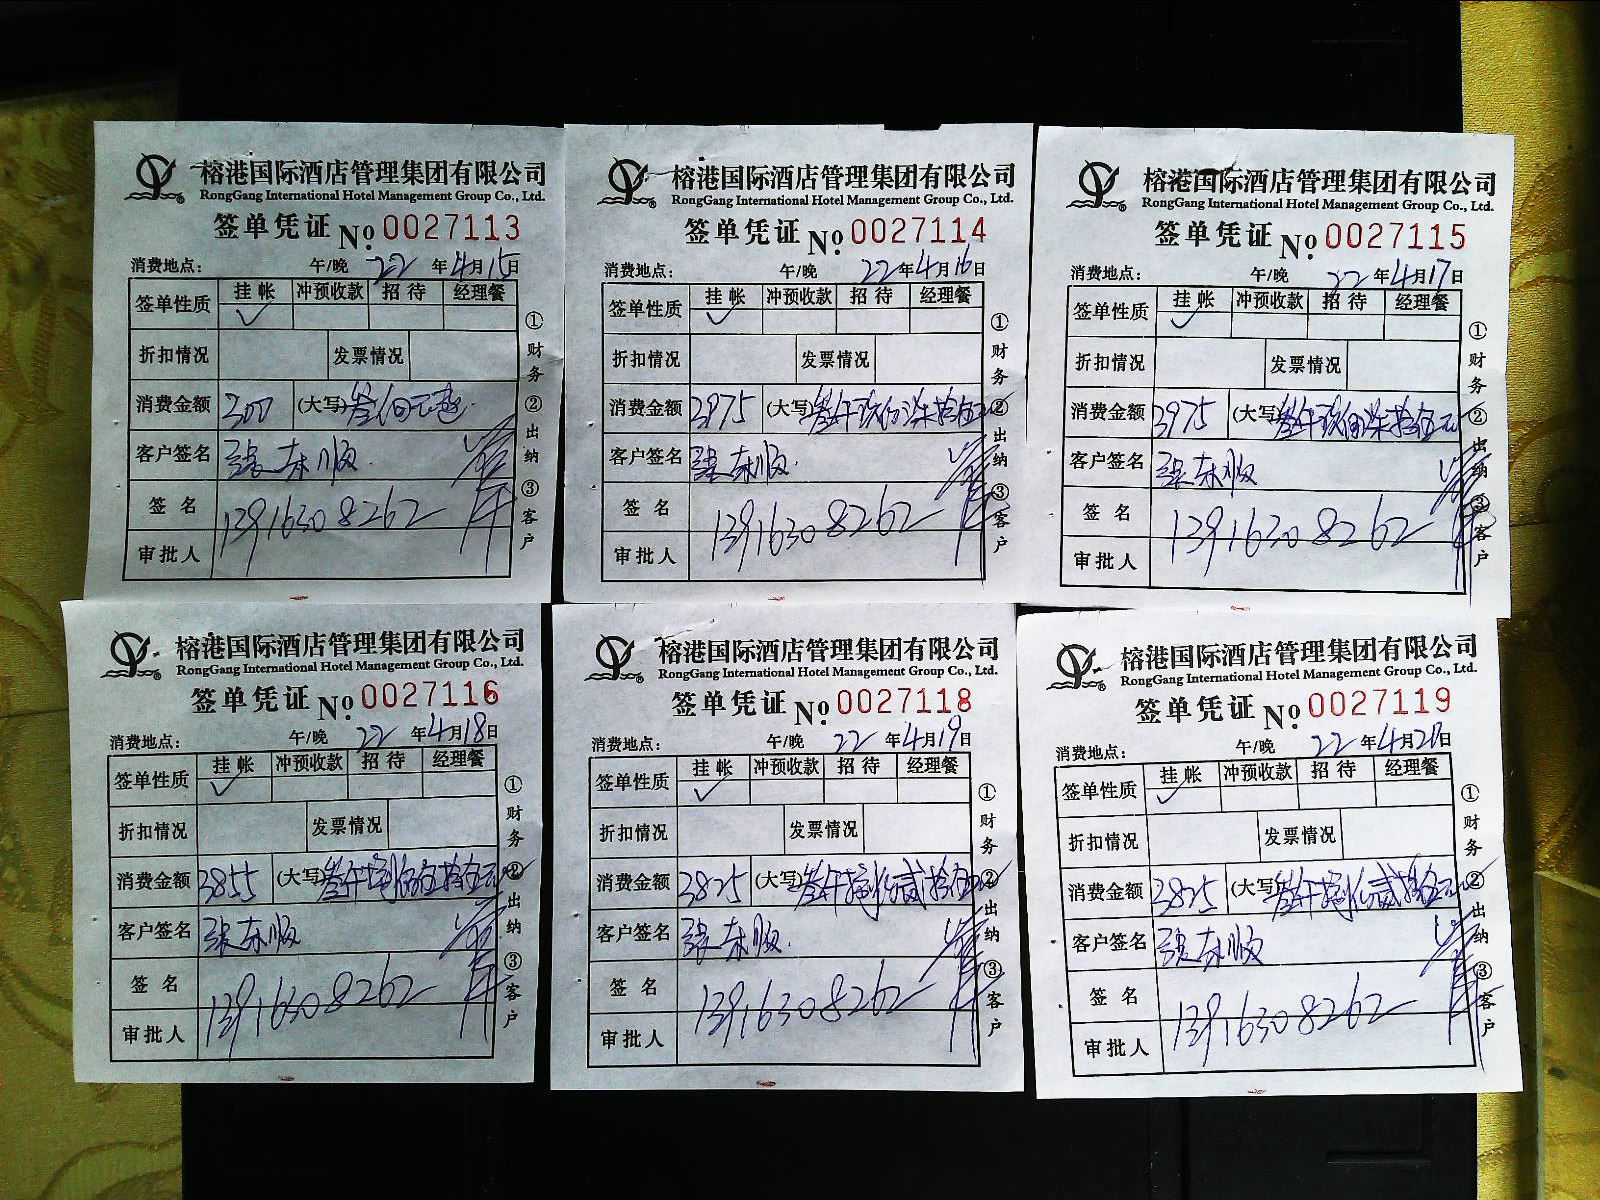 榕港国际酒店管理集团有限公司
RongGang International Hotel Management Group Co., Ltd.
签单凭证 No. 0027113
消费地点: 午/晚 22年4月15日
签单性质 挂帐 冲预收款 招待 经理餐
✓
折扣情况 发票情况
消费金额 300 (大写)叁佰元整
客户签名 张东顺
签名 13916308262
审批人
①财务②出纳③客户
榕港国际酒店管理集团有限公司
RongGang International Hotel Management Group Co., Ltd.
签单凭证 No. 0027114
消费地点: 午/晚 22年4月16日
签单性质 挂帐 冲预收款 招待 经理餐
✓
折扣情况 发票情况
消费金额 3975 (大写)叁仟玖佰柒拾伍元
客户签名 张东顺
签名 13916308262
审批人
①财务②出纳③客户
榕港国际酒店管理集团有限公司
RongGang International Hotel Management Group Co., Ltd.
签单凭证 No. 0027115
消费地点: 午/晚 22年4月17日
签单性质 挂帐 冲预收款 招待 经理餐
✓
折扣情况 发票情况
消费金额 3975 (大写)叁仟玖佰柒拾伍元
客户签名 张东顺
签名 13916308262
审批人
①财务②出纳③客户
榕港国际酒店管理集团有限公司
RongGang International Hotel Management Group Co., Ltd.
签单凭证 No. 0027116
消费地点: 午/晚 22年4月18日
签单性质 挂帐 冲预收款 招待 经理餐
✓
折扣情况 发票情况
消费金额 3855 (大写)叁仟捌佰伍拾伍元
客户签名 张东顺
签名 13916308262
审批人
①财务②出纳③客户
榕港国际酒店管理集团有限公司
RongGang International Hotel Management Group Co., Ltd.
签单凭证 No. 0027118
消费地点: 午/晚 22年4月19日
签单性质 挂帐 冲预收款 招待 经理餐
✓
折扣情况 发票情况
消费金额 3825 (大写)叁仟捌佰贰拾伍元
客户签名 张东顺
签名 13916308262
审批人
①财务②出纳③客户
榕港国际酒店管理集团有限公司
RongGang International Hotel Management Group Co., Ltd.
签单凭证 No. 0027119
消费地点: 午/晚 22年4月 日
签单性质 挂帐 冲预收款 招待 经理餐
✓
折扣情况 发票情况
消费金额 3825 (大写)叁仟捌佰贰拾伍元
客户签名 张东顺
签名 13916308262
审批人
①财务②出纳③客户